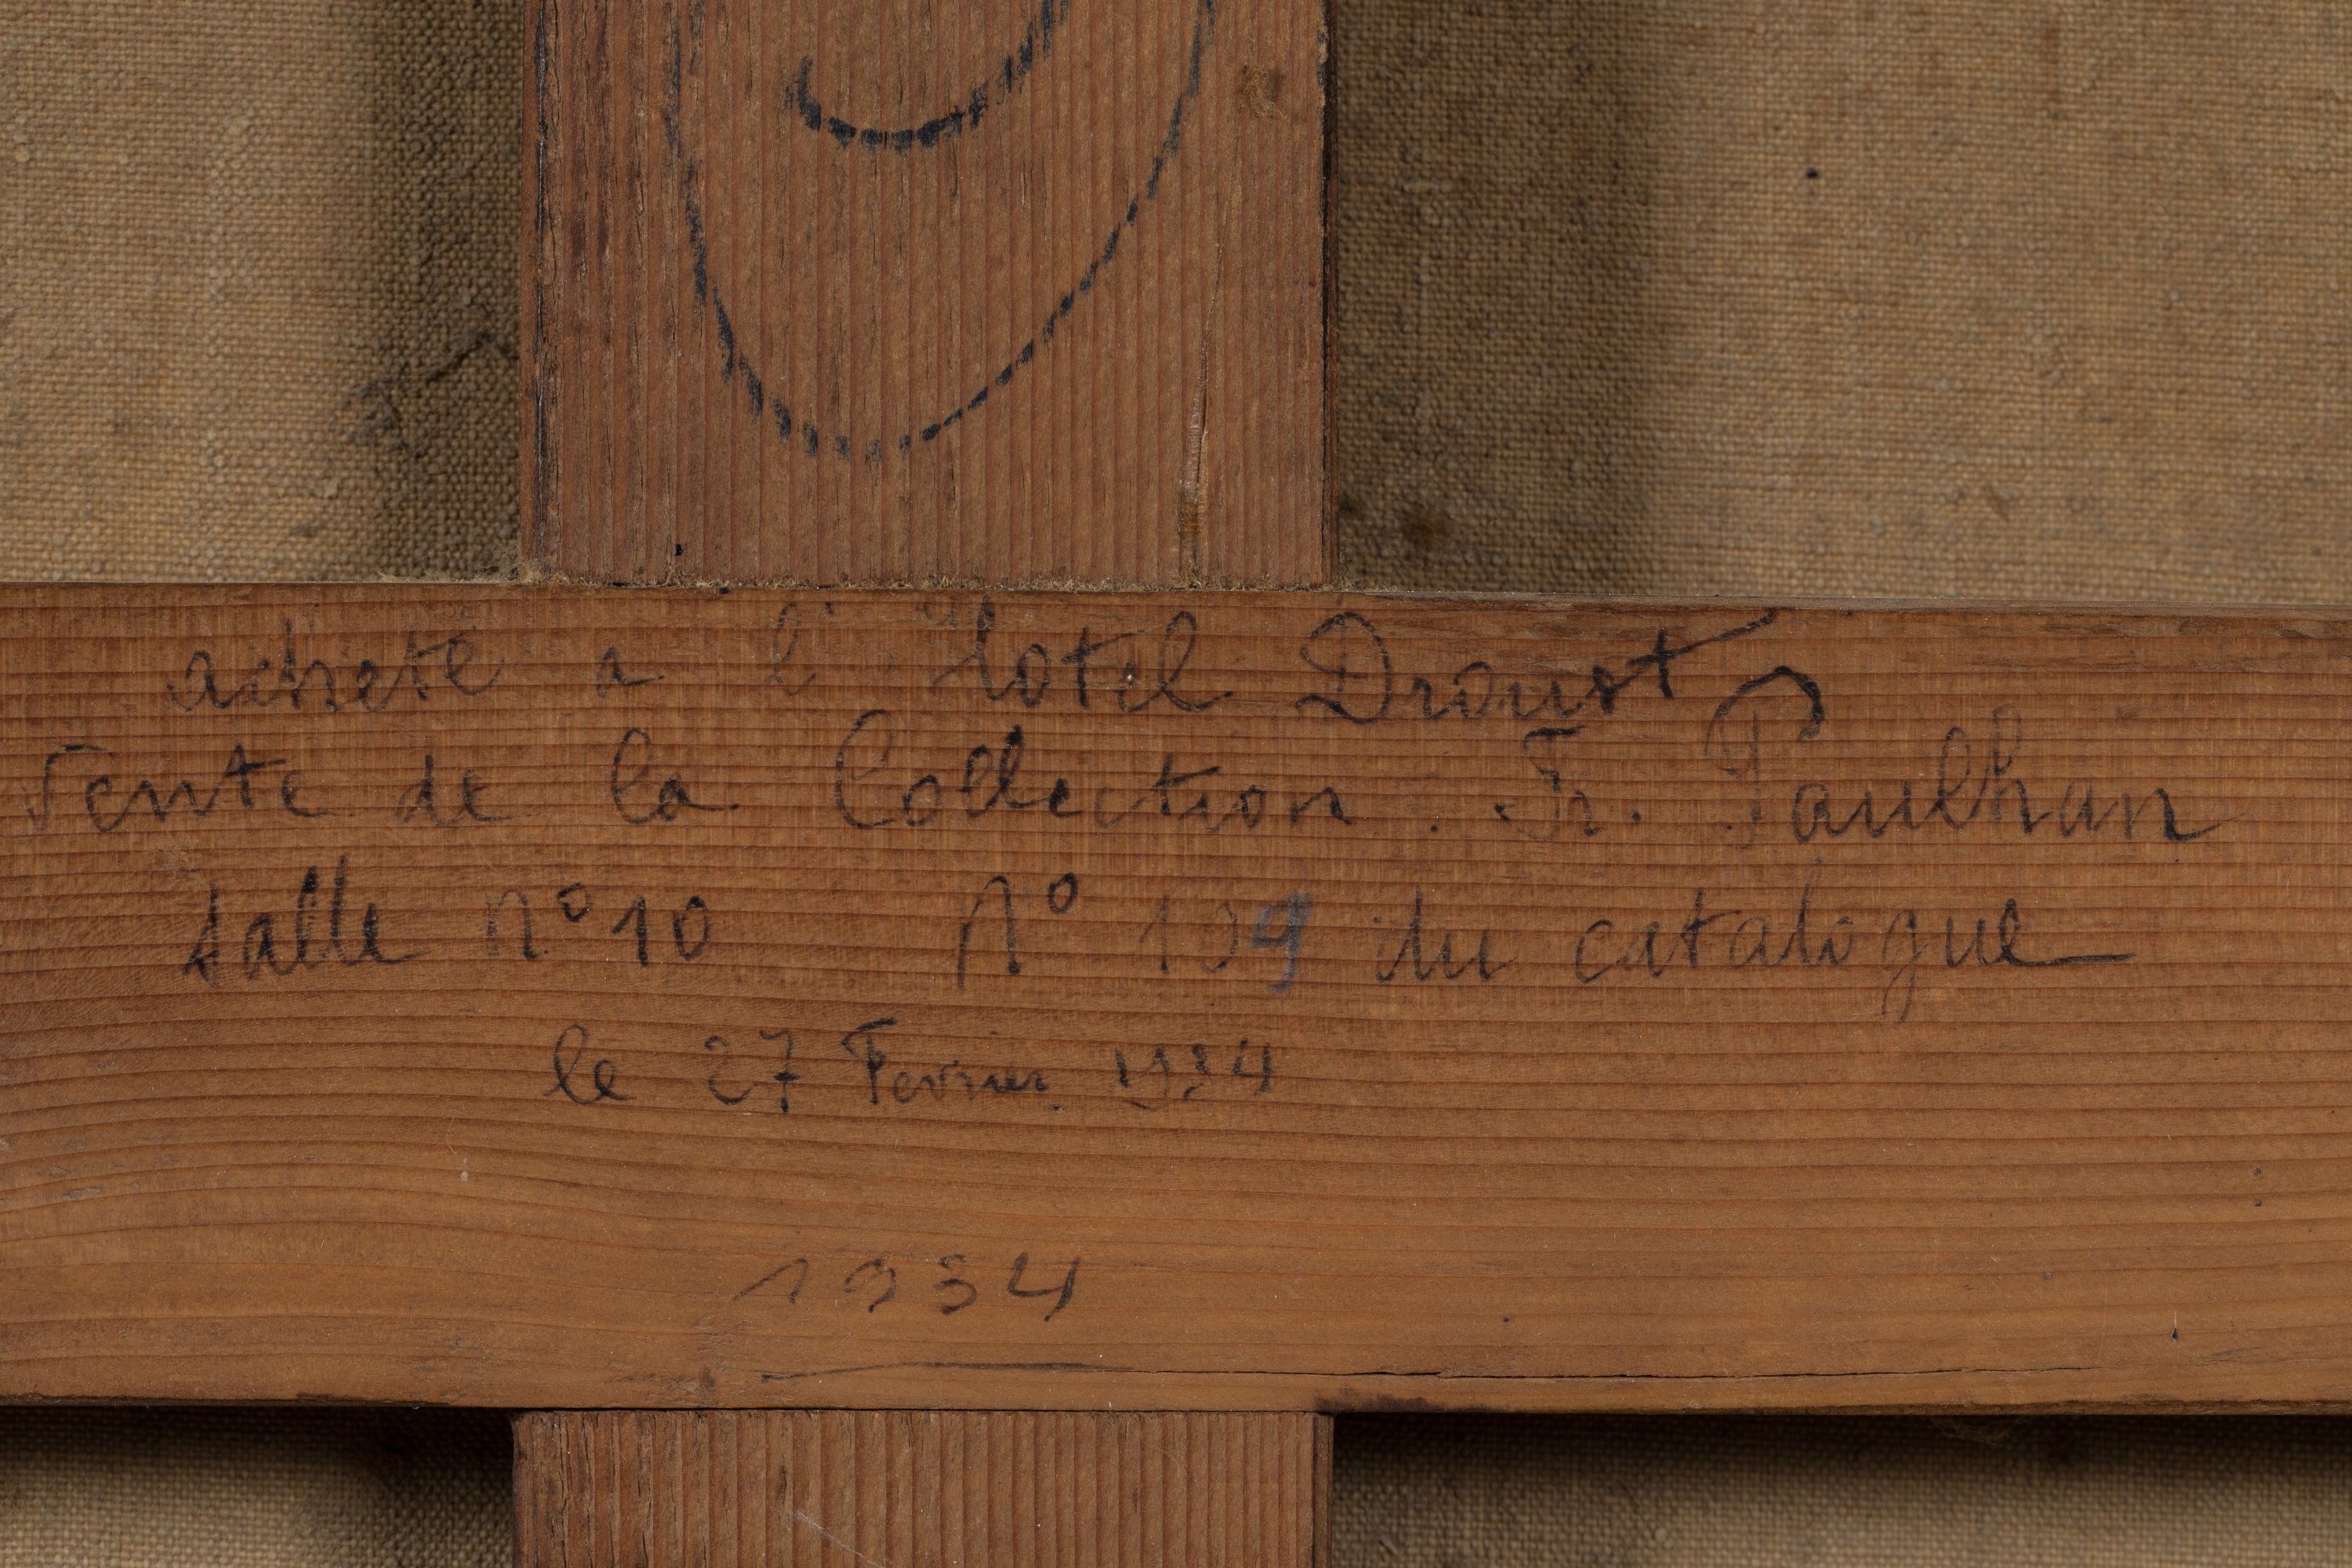 acheté a l'hotel Drouot
Vente de la Collection. Fr. Paulhan
salle n° 10 N° 109 du catalogue
le 27 Fevrier 1934
1934